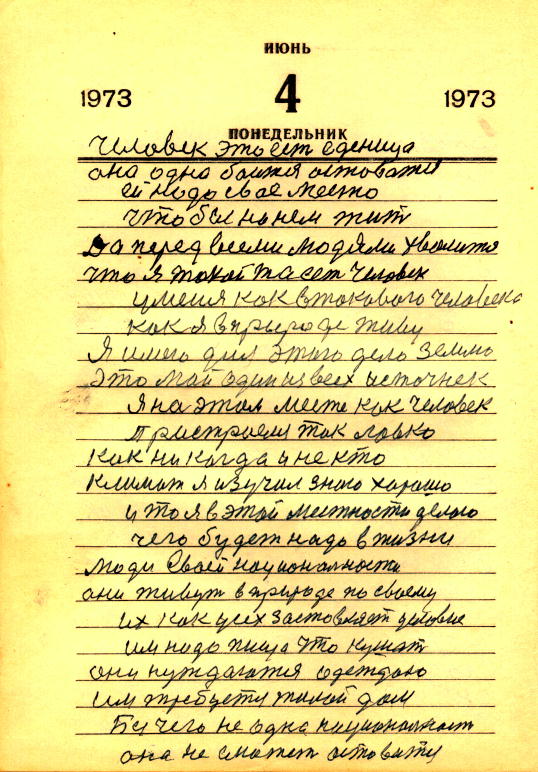 ИЮНЬ
1973 4 1973
ПОНЕДЕЛЬНИК
Человек это ест еденица
она одна боится остоватся
ей надо свае место
что бы на нем жит
Да перед всеми людями хвалится
что я токой та сет человек
у меня как в токового человека
как я в прыроде живу
Я имею для этого дело землю
Это мой один из всех источнек
Я на этом месте как человек
пристроемся так ловко
как ни когда и не кто
Климат я изучил знаю хорошо
и то я в этой местности делаю
чего будет надо в жизни
люди своей национальности
они живут в природе по своему
их как усех застовляет условие
им надо пища что кушат
они нуждаются одеждаю
им требуется жилой дом
Без чего не одна национальност
она не сможет остоватся